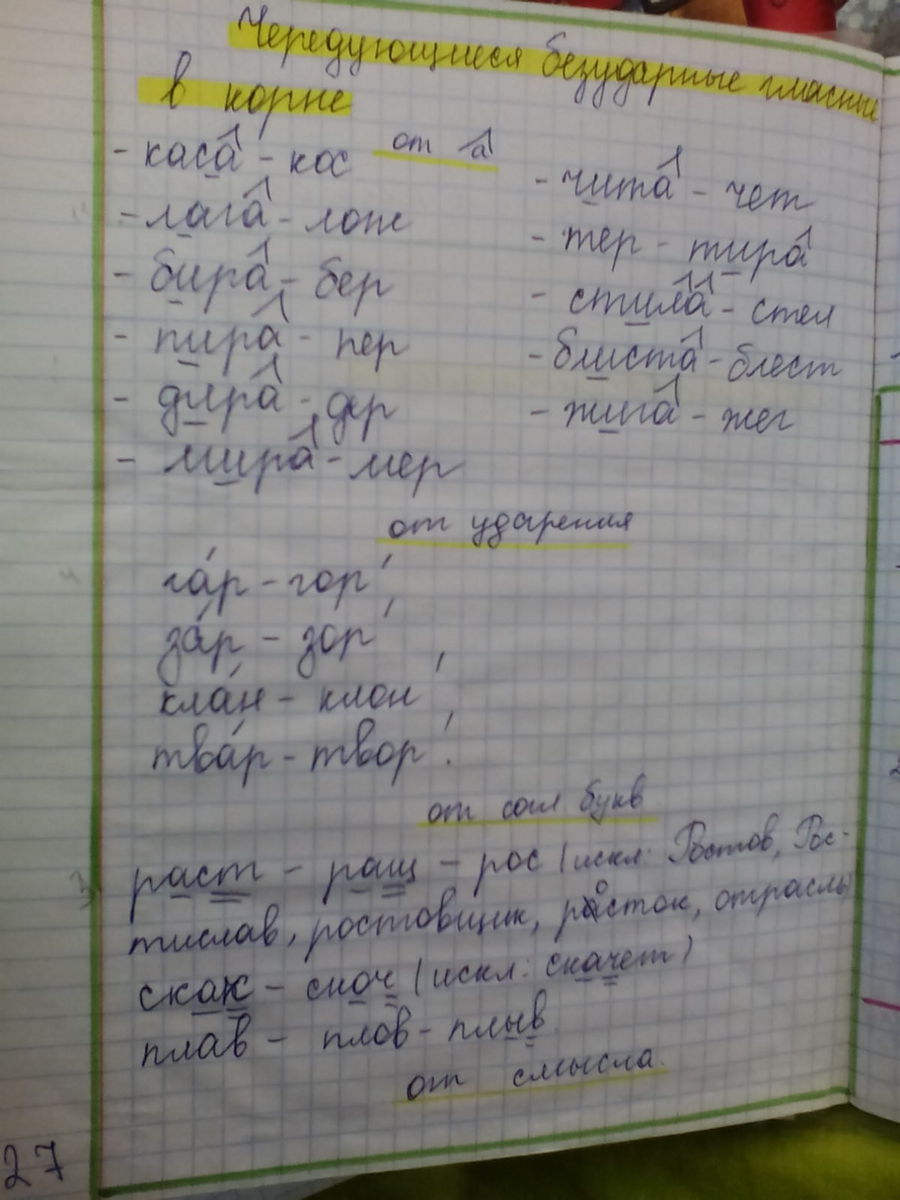 Чередующиеся безударные гласные
в корне
- каса - кос от а
- лага - лож
- бира - бер
- пира - пер
- дира - дер
- мира - мер
- чита - чет
- тер - тира
- стила - стел
- блиста - блест
- жига - жег
от ударения
га́р - гор ́
за́р - зор ́
кла́н - клон ́
тва́р - твор ́.
от согл букв
раст - ращ - рос (искл: Ростов, Рос-
тислав, ростовщик, росток, отрасль
скак - скоч (искл: скачет)
плав - плов - плыв
от смысла.
27